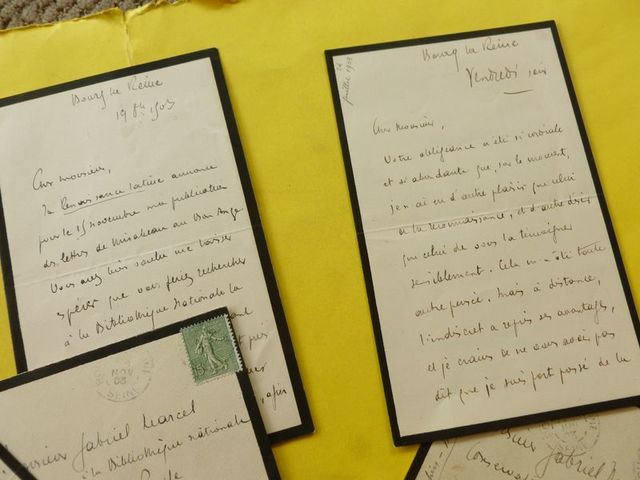 Bourg la Reine
19 8bre 1903
Cher monsieur,
la Renaissance latine annonce
pour le 15 novembre ma publication
des lettres de Mirabeau au Bon Ange
Vous avez bien voulu me laisser
espérer que vous feriez rechercher
à la Bibliothèque Nationale la
Monsieur Gabriel Marcel
à la Bibliothèque nationale
Bourg la Reine
Vendredi soir
juillet 1903
Cher monsieur,
Votre obligeance a été si cordiale
et si abondante que, sur le moment,
je n'ai eu d'autre plaisir que celui
de la reconnaissance, et d'autre désir
que celui de vous la témoigner
sensiblement. Cela m'a ôté toute
autre pensée. Mais à distance,
l'indiscret a repris ses avantages,
et je crains de ne vous avoir pas
dit que je suis fort pressé de la
Gabriel